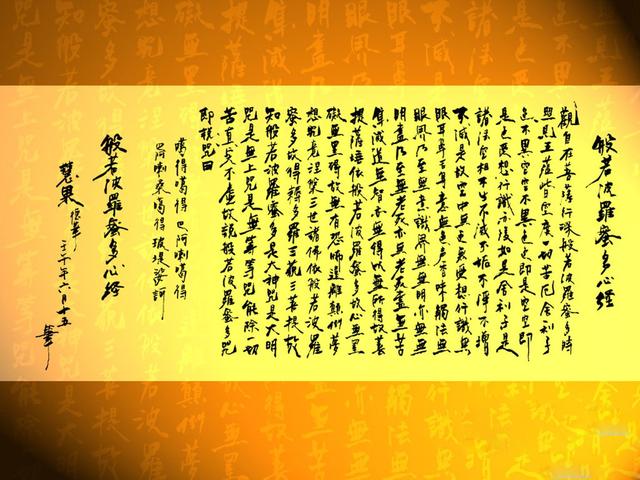 般若波羅蜜多心經
觀自在菩薩行深般若波羅蜜多時
照見五蘊皆空度一切苦厄舍利子
色不異空空不異色色即是空空即
是色受想行識亦復如是舍利子是
諸法空相不生不滅不垢不淨不增
不減是故空中無色無受想行識無
眼耳鼻舌身意無色聲香味觸法無
眼界乃至無意識界無無明亦無無
明盡乃至無老死亦無老死盡無苦
集滅道無智亦無得以無所得故菩
提薩埵依般若波羅蜜多故心無罣
礙無罣礙故無有恐怖遠離顛倒夢
想究竟涅槃三世諸佛依般若波羅
蜜多故得耨多羅三藐三菩提故
知般若波羅蜜多是大神咒是大明
咒是無上咒是無等等咒能除一切
苦真實不虛故說般若波羅蜜多咒
即說咒曰
噶得噶得 巴阿喇噶得
阿喇桑噶得 玻堤娑訶
般若波羅蜜多心經
慧果
壬午年六月十五